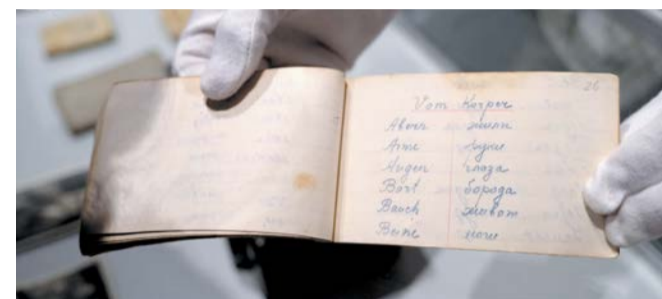 26
Vom Körper
Adern жилы
Arme руки
Augen глаза
Bart борода
Bauch живот
Beine ноги